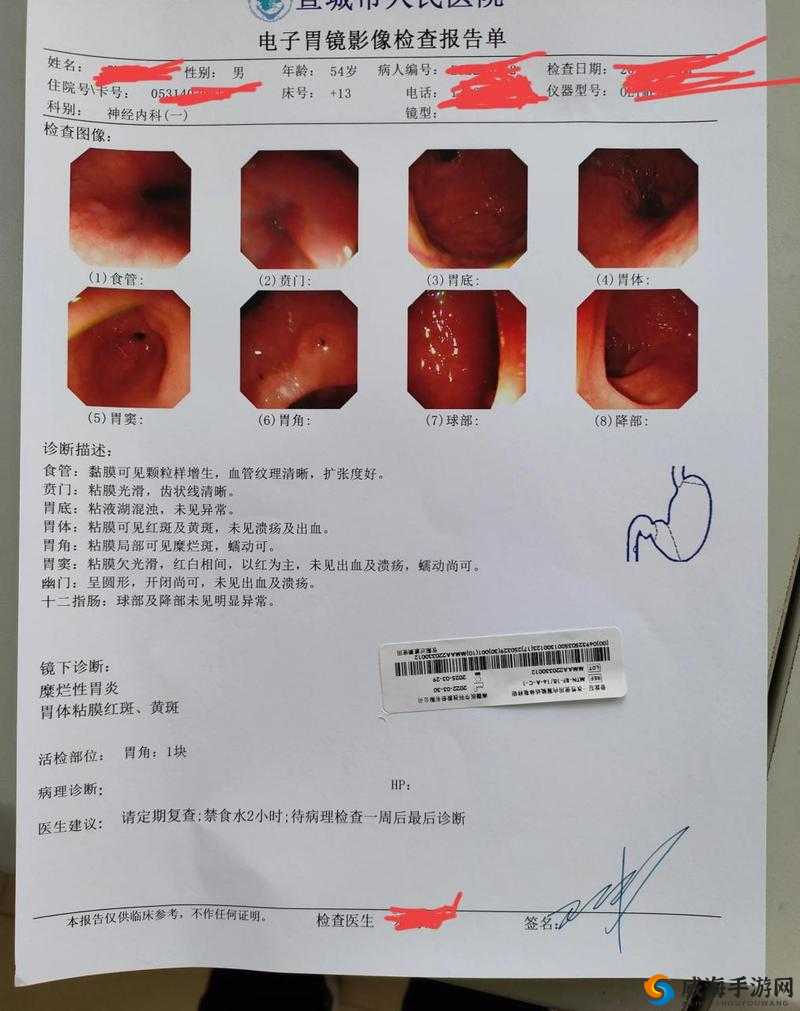 宣城市人民医院
电子胃镜影像检查报告单
姓名： 性别： 男 年龄： 54岁 病人编号： 检查日期：
住院号\卡号： 05314 床号： +13 电话： 仪器型号：
科别： 神经内科(一) 镜型：
检查图像：
(1)食管： (2)贲门： (3)胃底： (4)胃体：
(5)胃窦： (6)胃角： (7)球部： (8)降部：
诊断描述：
食管：黏膜可见颗粒样增生，血管纹理清晰，扩张度好。
贲门：粘膜光滑，齿状线清晰。
胃底：粘液湖混浊，未见异常。
胃体：粘膜可见红斑及黄斑，未见溃疡及出血。
胃角：粘膜局部可见糜烂斑，蠕动可。
胃窦：粘膜欠光滑，红白相间，以红为主，未见出血及溃疡，蠕动尚可。
幽门：呈圆形，开闭尚可，未见出血及溃疡。
十二指肠：球部及降部未见明显异常。
镜下诊断：
糜烂性胃炎
胃体粘膜红斑、黄斑
活检部位： 胃角：1块
病理诊断： HP：
医生建议： 请定期复查;禁食水2小时;待病理检查一周后最后诊断
REF MTN-BF-18/16-A-C-1
LOT MMAA220330012
2022-03-30
2025-03-29
本报告仅供临床参考，不作任何证明。 检查医生 签名：
威海手游网